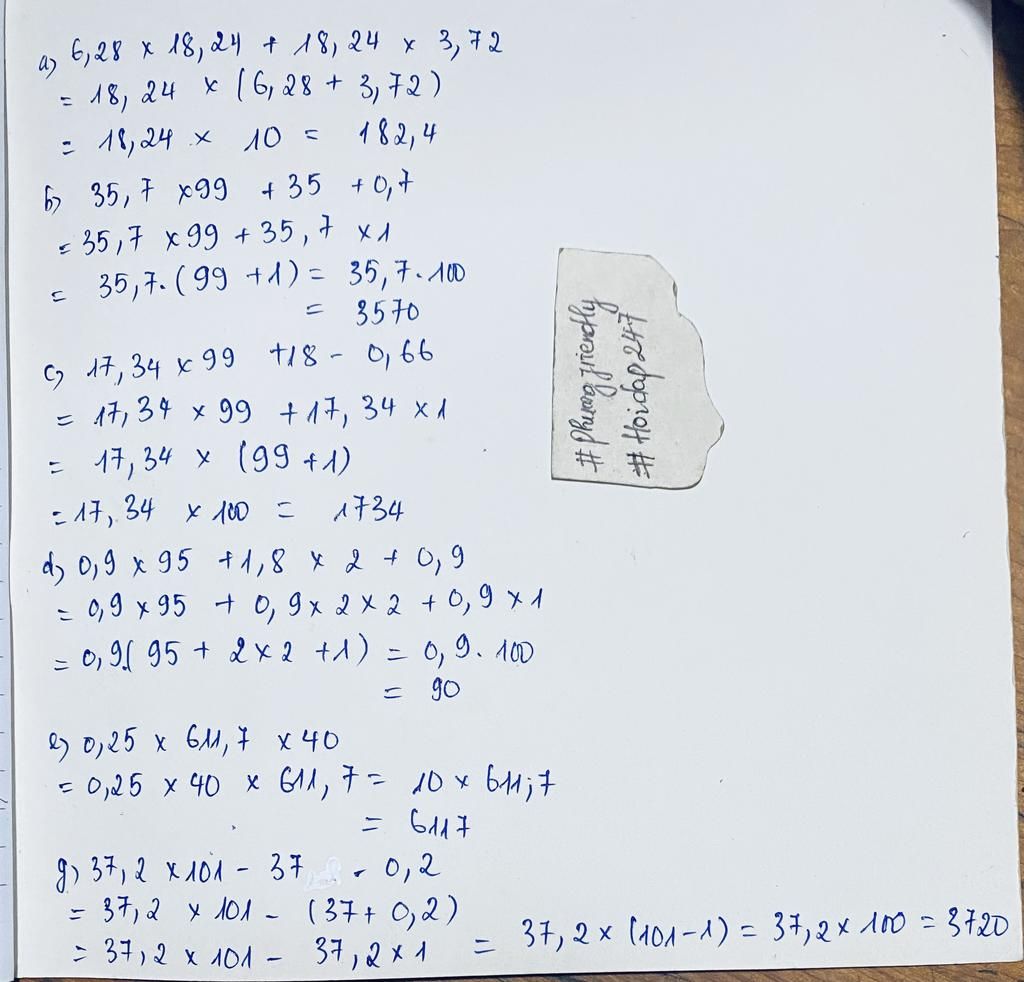 a) 6,28 x 18,24 + 18,24 x 3,72
= 18,24 x (6,28 + 3,72)
= 18,24 x 10 = 182,4
b) 35,7 x 99 + 35 + 0,7
= 35,7 x 99 + 35,7 x 1
= 35,7.(99 + 1) = 35,7.100
= 3570
c) 17,34 x 99 + 18 - 0,66
= 17,34 x 99 + 17,34 x 1
= 17,34 x (99 + 1)
= 17,34 x 100 = 1734
d) 0,9 x 95 + 1,8 x 2 + 0,9
= 0,9 x 95 + 0,9 x 2 x 2 + 0,9 x 1
= 0,9.(95 + 2 x 2 + 1) = 0,9.100
= 90
e) 0,25 x 611,7 x 40
= 0,25 x 40 x 611,7 = 10 x 611,7
= 6117
g) 37,2 x 101 - 37 - 0,2
= 37,2 x 101 - (37 + 0,2)
= 37,2 x 101 - 37,2 x 1 = 37,2 x (101-1) = 37,2 x 100 = 3720
#Phuongfriendly
#Hoidap247